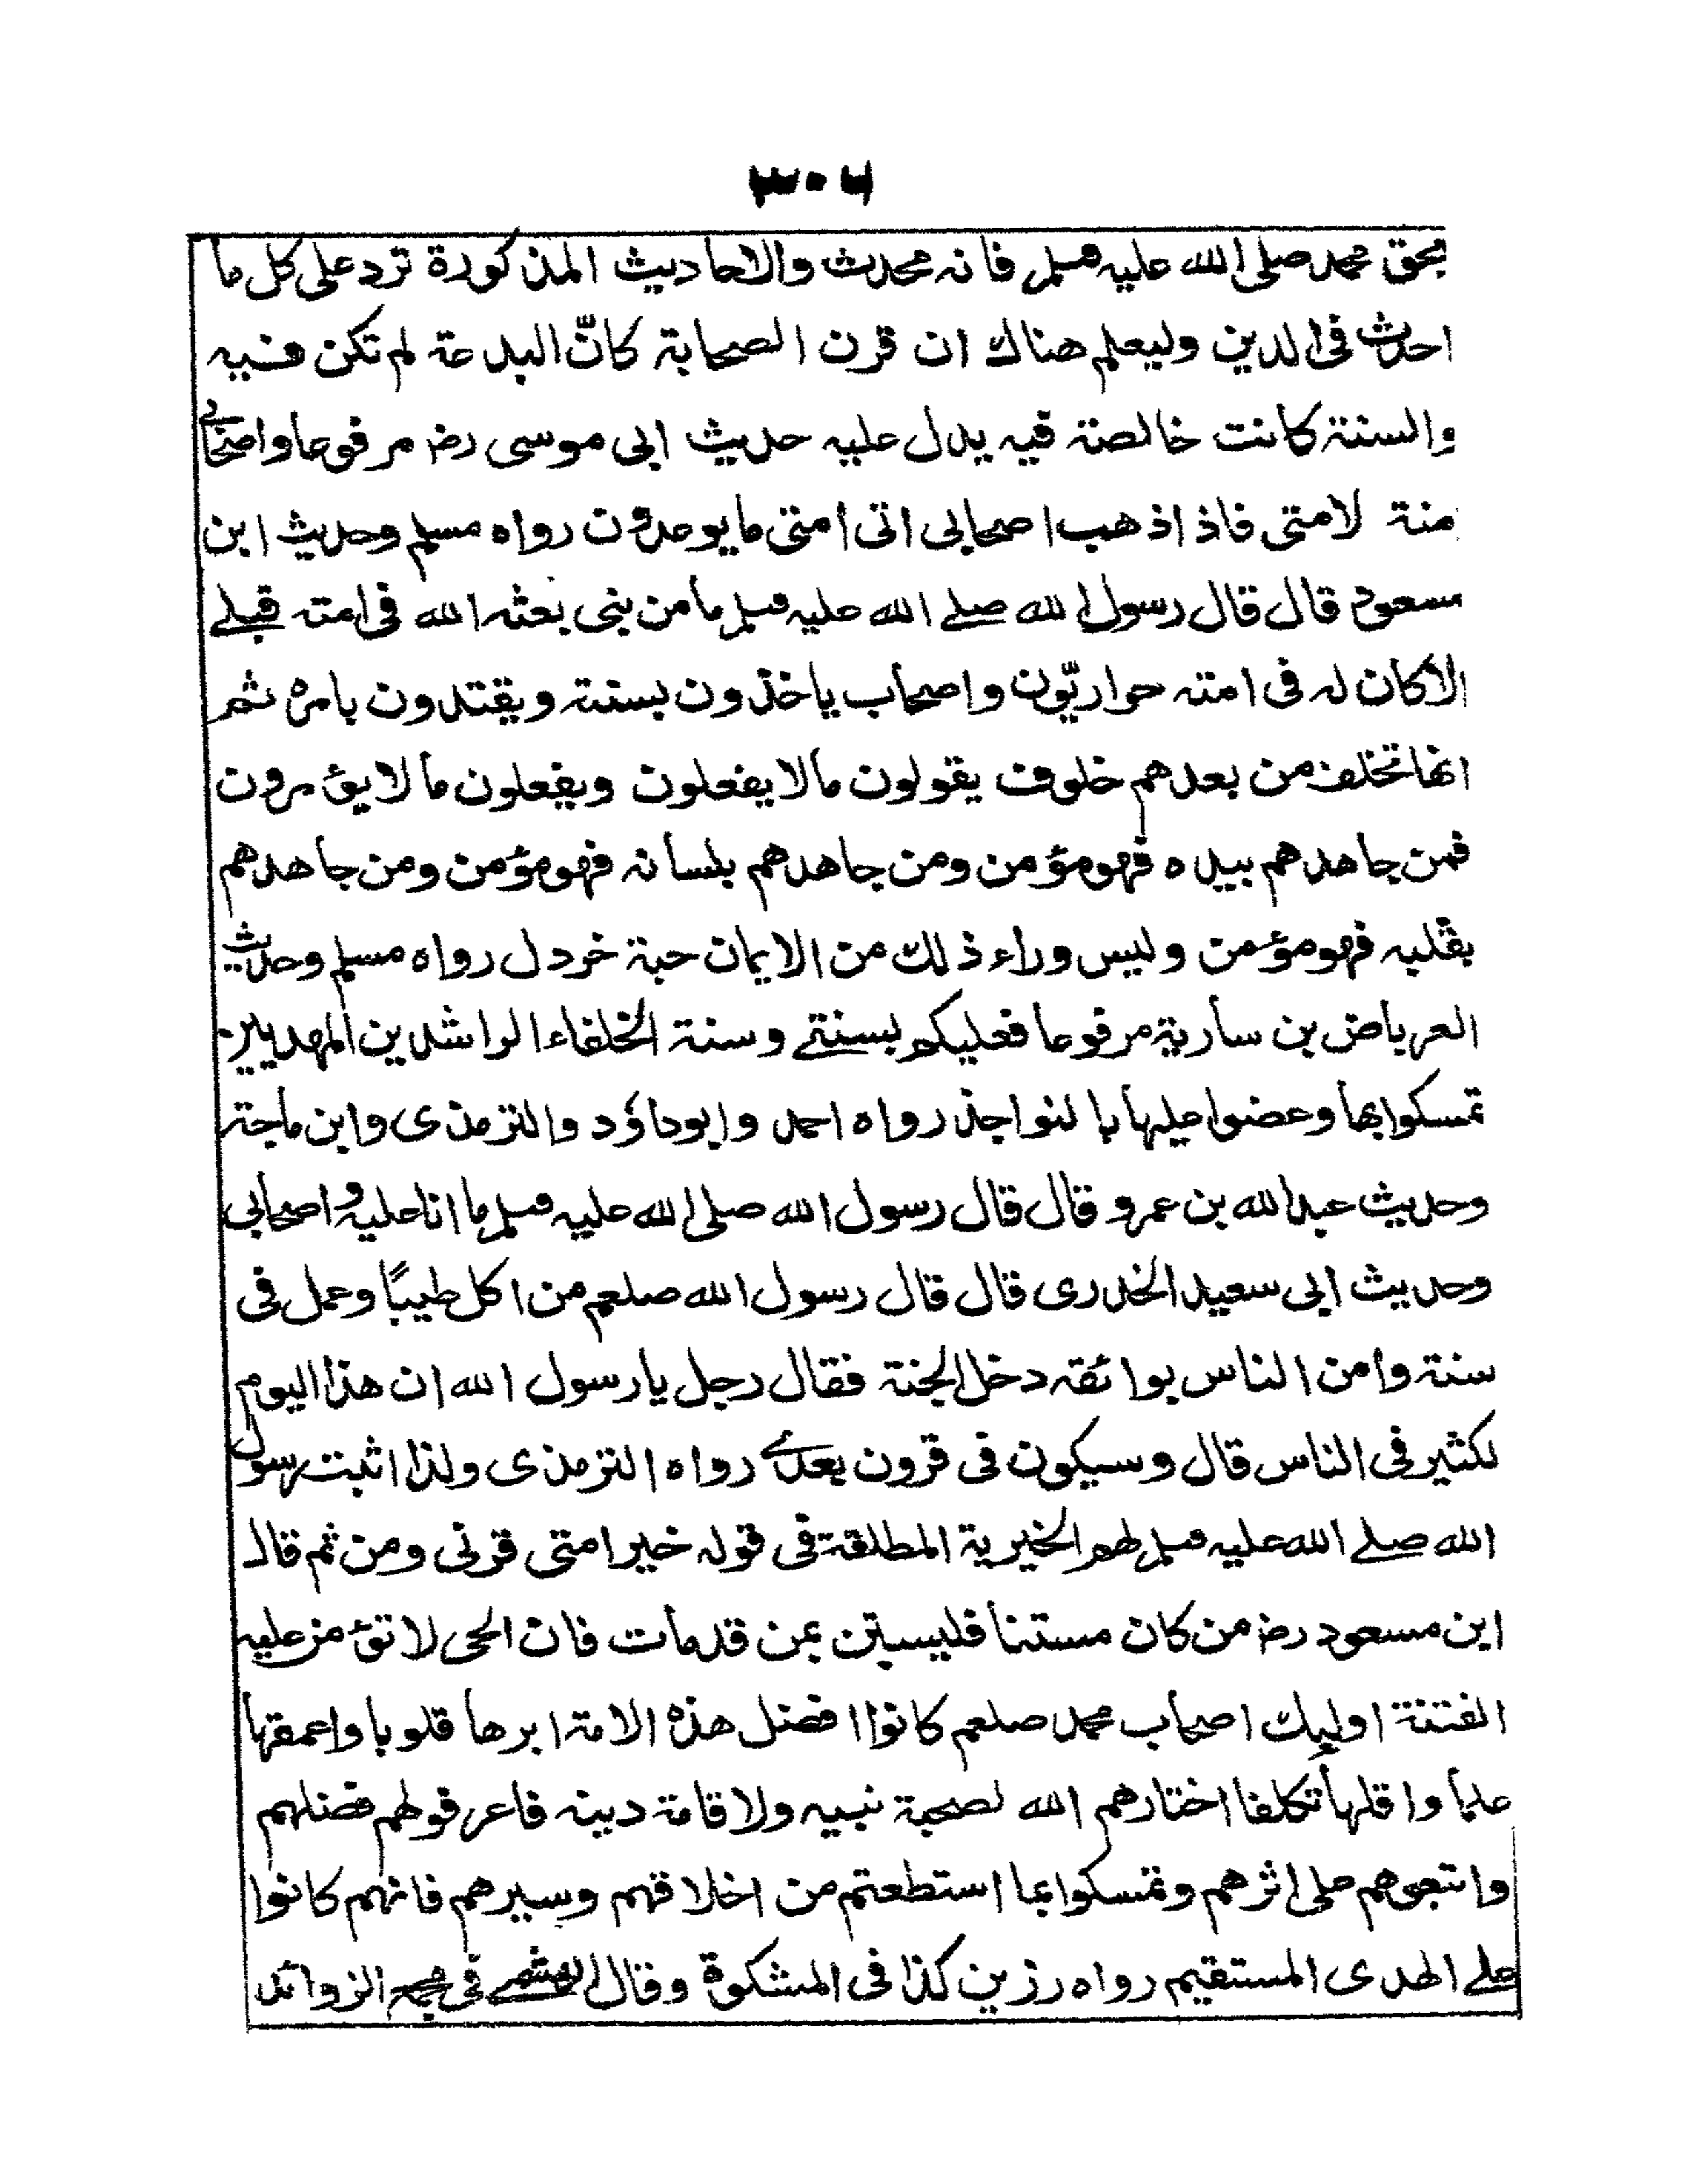 ٣٠٦
بحق محمد صلى الله عليه وسلم فانه محدث والاحاديث المذكورة ترد على كل ما
احدث فى الدين وليعلم هناك ان قرن الصحابة كانّ البدعة لم تكن فيه
والسنة كانت خالصة فيه يدل عليه حديث ابى موسى رض مرفوعا واصحابى
منة لامتى فاذا ذهب اصحابى اتى امتى ما يوعدون رواه مسلم وحديث ابن
مسعود قال قال رسول الله صلے الله عليه وسلم ما من نبى بعثه الله فى امته قبلے
الا كان له فى امته حواريّون واصحاب ياخذون بسنته ويقتدون بامره ثم
انها تخلف من بعدهم خلوف يقولون مالا يفعلون ويفعلون ما لا يؤمرون
فمن جاهدهم بيده فهو مؤمن ومن جاهدهم بلسانه فهو مؤمن ومن جاهدهم
بقلبه فهو مؤمن وليس وراء ذلك من الايمان حبة خردل رواه مسلم وحديث
العرباض بن سارية مرفوعا فعليكم بسنتے وسنة الخلفاء الراشدين المهديين
تمسكوا بها وعضوا عليها بالنواجذ رواه احمد وابوداؤد والترمذى وابن ماجة
وحديث عبدالله بن عمرو قال قال رسول الله صلى الله عليه وسلم ما انا عليه واصحابى
وحديث ابى سعيد الخدرى قال قال رسول الله صلعم من اكل طيبًا وعمل فى
سنة وامن الناس بوائقه دخل الجنة فقال رجل يا رسول الله ان هذا اليوم
لكثير فى الناس قال وسيكون فى قرون بعدے رواه الترمذى ولذا اثبت رسول
الله صلے الله عليه وسلم لهم الخيرية المطلقة فى قوله خير امتى قرنى ومن ثم قال
ابن مسعود رض من كان مستنا فليستن بمن قدمات فان الحى لا تؤمن عليه
الفتنة اوليك اصحاب محمد صلعم كانوا افضل هذه الامة ابرها قلوبا واعمقها
علما واقلها تكلفا اختارهم الله لصحبة نبيه ولاقامة دينه فاعرفوا لهم فضلهم
واتبعوهم على اثرهم وتمسكوا بما استطعتم من اخلاقهم وسيرهم فانهم كانوا
علے الهدى المستقيم رواه رزين كذا فى المشكوة وقال الهيثمے فى مجمع الزوائد